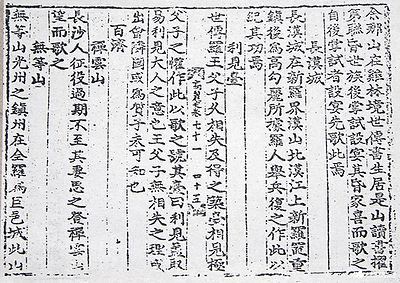 余那山在雞林境世傳書生居是山讀書擢
第聯昏世族後掌試設宴其昏家喜而歌之
自後掌試者設宴先歌此焉
長漢城
長漢城在新羅界漢山北漢江上新羅置重
鎭後爲高勾麗所據羅人擧兵復之作此以
紀其功焉
利見臺
世傳羅王父子久相失及得之築臺相見極
七十一 四十三
父子之懽作此以歌之號其臺曰利見盖取
易利見大人之意也王父子無相失之理或
出會隣國或爲質子未可知也
百濟
禪雲山
長沙人征役過期不至其妻思之登禪雲山
望而歌之
無等山
無等山光州之鎭州在全羅爲巨邑城此山